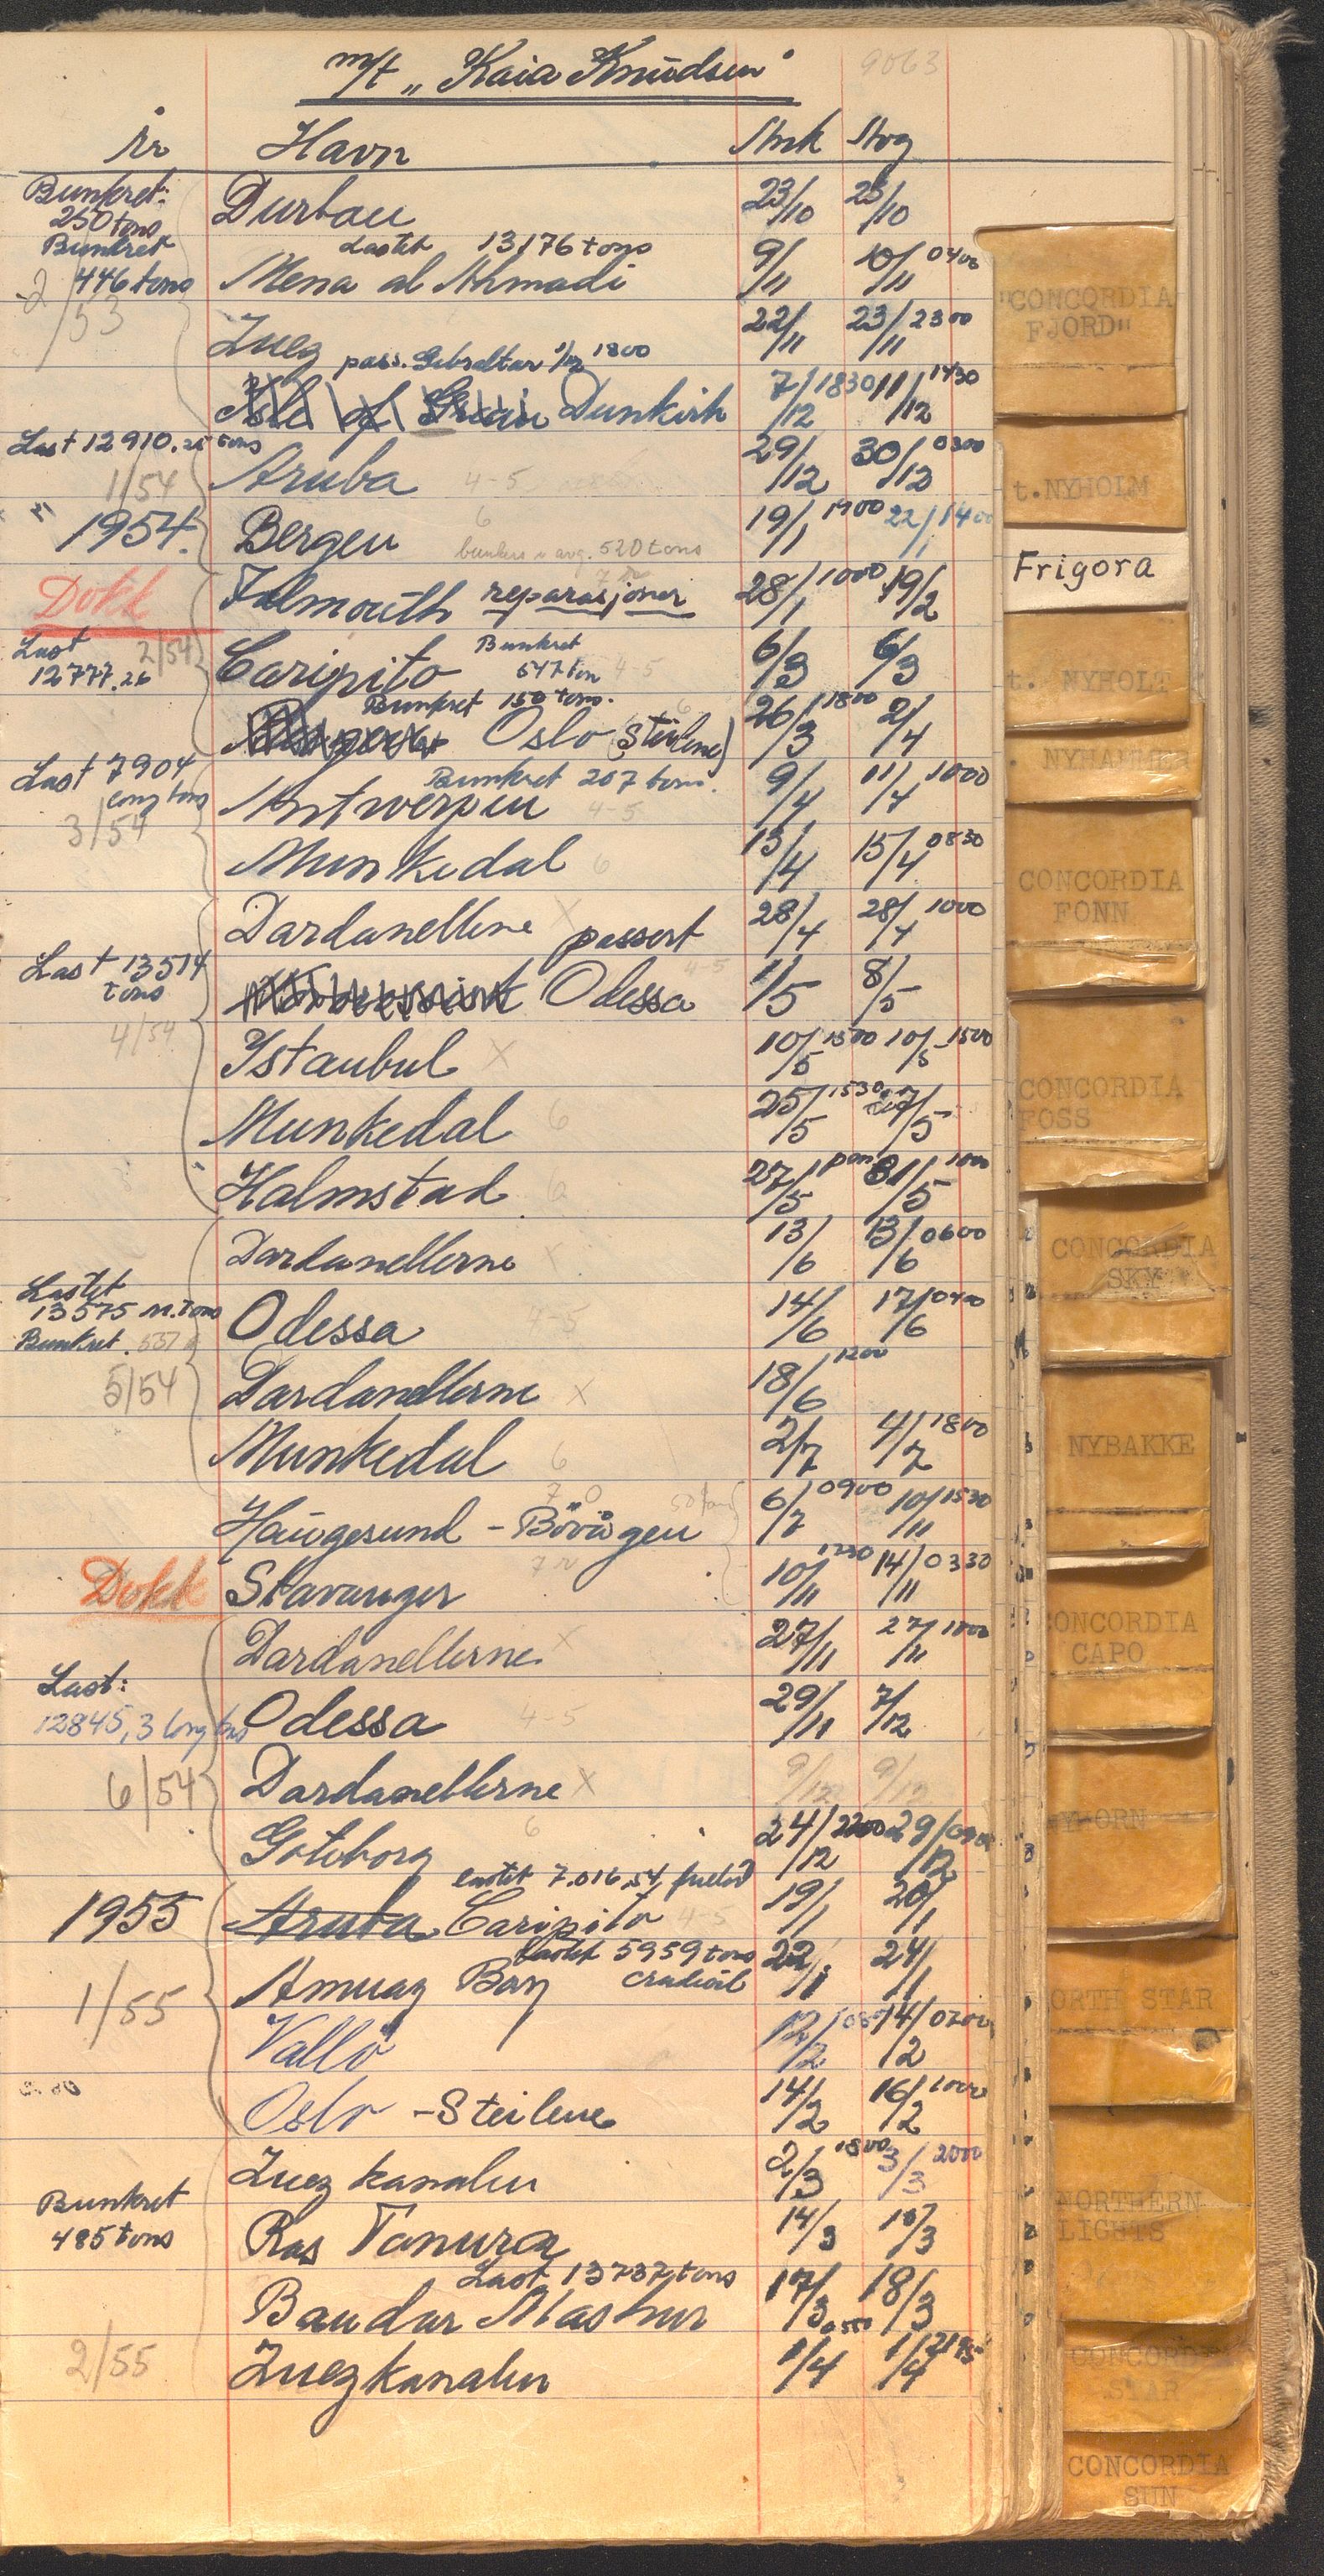 m/t „Kaia Knudsen" 9063
År Havn Ank Avg
Bunkret: 250 tons Durban 23/10 25/10
Bunkret 446 tons Lastet 13176 tons
Mena al Ahmadi 9/11 10/11 0400
2/53
Zuez 22/11 23/11 2300
pass. Gibraltar 1/12 1800
Isle of Grain Dunkirk 7/12 1830 11/12 1430
Last 12910.25 tons
1/54 Aruba 4-5 29/12 30/12 0300
1954. Bergen 6 19/1 1400 22/1 1400
bunkers v avg. 520 tons
Dokk Falmouth reparasjoner 28/1 1000 19/2
Last 12777.26 2/54 Caripito Bunkret 647 ton 4-5 6/3 6/3
Bunkret 150 tons.
Oslo (Steilene) 6 26/3 1800 2/4
Last 7904 long tons Bunkret 207 tons.
Antwerpen 4-5 9/4 11/4 1000
3/54
Munkedal 6 13/4 15/4 0830
Dardanellene X passert 28/4 28/4 1000
Last 13514 tons Odessa 4-5 1/5 8/5
4/54 Istanbul X 10/5 1300 10/5 1500
Munkedal 6 25/5 1530 27/5
Halmstad 6 27/5 pm 31/5 1000
Dardanellerne X 13/6 13/6 0600
Lastet 13575 m.tons
Bunkret. 537 Odessa 4-5 14/6 17/6 0400
5/54 Dardanellerne X 18/6 1200
Munkedal 6 2/7 4/7 1800
Haugesund - Bövågen 7 0 6/7 0900 10/11 1530
Dokk Stavanger 7 r 10/11 1230 14/11 0330
Dardanellerne X 27/11 27/11 1000
Last: 12845,3 long tons Odessa 4-5 29/11 7/12
6/54 Dardanellerne X 9/12 9/12
Göteborg 6 24/12 2200 29/12
lastet 7.016,54 fueloil
1955 Aruba Caripito 4-5 19/1 20/1
lastet 5959 tons crudeoil
Amuay Bay 22/1 24/1
1/55
Vallö 12/2 14/2 0200
Oslo - Steilene 14/2 16/2 1000
Zuez kanalen 2/3 1800 3/3 2000
Bunkret 485 tons Ras Tanura 14/3 16/3
Last 13737 tons
Bandar Mashur 17/3 18/3
2/55 Zuezkanalen 1/4 0550 1/4 2145
"CONCORDIA
FJORD"
t.NYHOLM
Frigora
t. NYHOLT
NYHAMMER
CONCORDIA
FONN
CONCORDIA
FOSS
CONCORDIA
SKY
NYBAKKE
CONCORDIA
CAPO
NYHORN
NORTH STAR
NORTHERN
LIGHTS
CONCORDIA
STAR
CONCORDIA
SUN